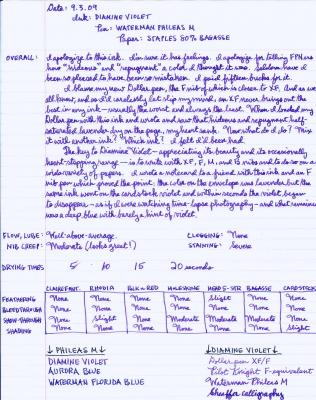 Date: 9.3.09
Ink: DIAMINE VIOLET
Pen: WATERMAN PHILEAS M
Paper: STAPLES 80% BAGASSE
OVERALL: I apologize to this ink. I'm sure it has feelings. I apologize for telling FPN'ers
how "hideous" and "repugnant" a color I thought it was. Seldom have I
been so pleased to have been so mistaken. I paid fifteen bucks for it.
I blame my new Dollar pen, the F nib of which is closer to XF. And as we
all know, and as I'd carelessly let slip my mind, an XF never brings out the
best in any ink — usually the worst and always the least. When I loaded my
Dollar pen with this ink and wrote and saw that hideous and repugnant half-
saturated lavender dry on the page, my heart sank. Now what do I do? Mix
it with another ink? Which ink? I felt I'd been had.
The key to Diamine Violet — appreciating its beauty and its occasionally
heart-stopping range — is to write with XF, F, M, and B nibs and to do so on a
wide variety of papers. I wrote a note card to a friend with this ink and an F
nib pen which proved the point. The color on the envelope was lavender, but the
same ink went on the cardstock violet and within seconds the violet began
to disappear — as if I were watching time-lapse photography — and what remained
was a deep blue with barely a hint of violet.
FLOW, LUBE: Well above average. CLOGGING: None
NIB CREEP: Moderate (looks great!) STAINING: Severe
DRYING TIMES 5 10 15 20 seconds
CLAIREFONT. RHODIA BLK N RED MOLESKINE HEAD 5-STR BAGASSE CARDSTOCK
FEATHERING None None None None Slight None None
BLEEDTHROUGH None None None None None None None
SHOW-THROUGH None Slight None Moderate Moderate Moderate None
SHADING None None None None None None Slight
↓ PHILEAS M ↓ ↓ DIAMINE VIOLET ↓
DIAMINE VIOLET Dollar pen XF/F
AURORA BLUE Pilot Knight F-equivalent
WATERMAN FLORIDA BLUE Waterman Phileas M
Sheaffer calligraphy